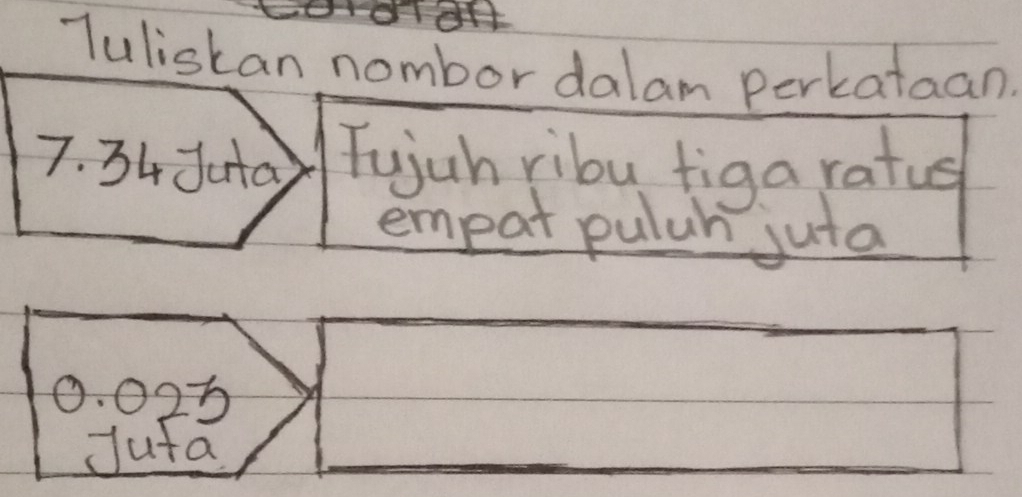 Tuliskan nombor dalam perkataan.
7.34 Juta
Tujuh ribu tiga ratus
empat puluh juta
0.023
Juta